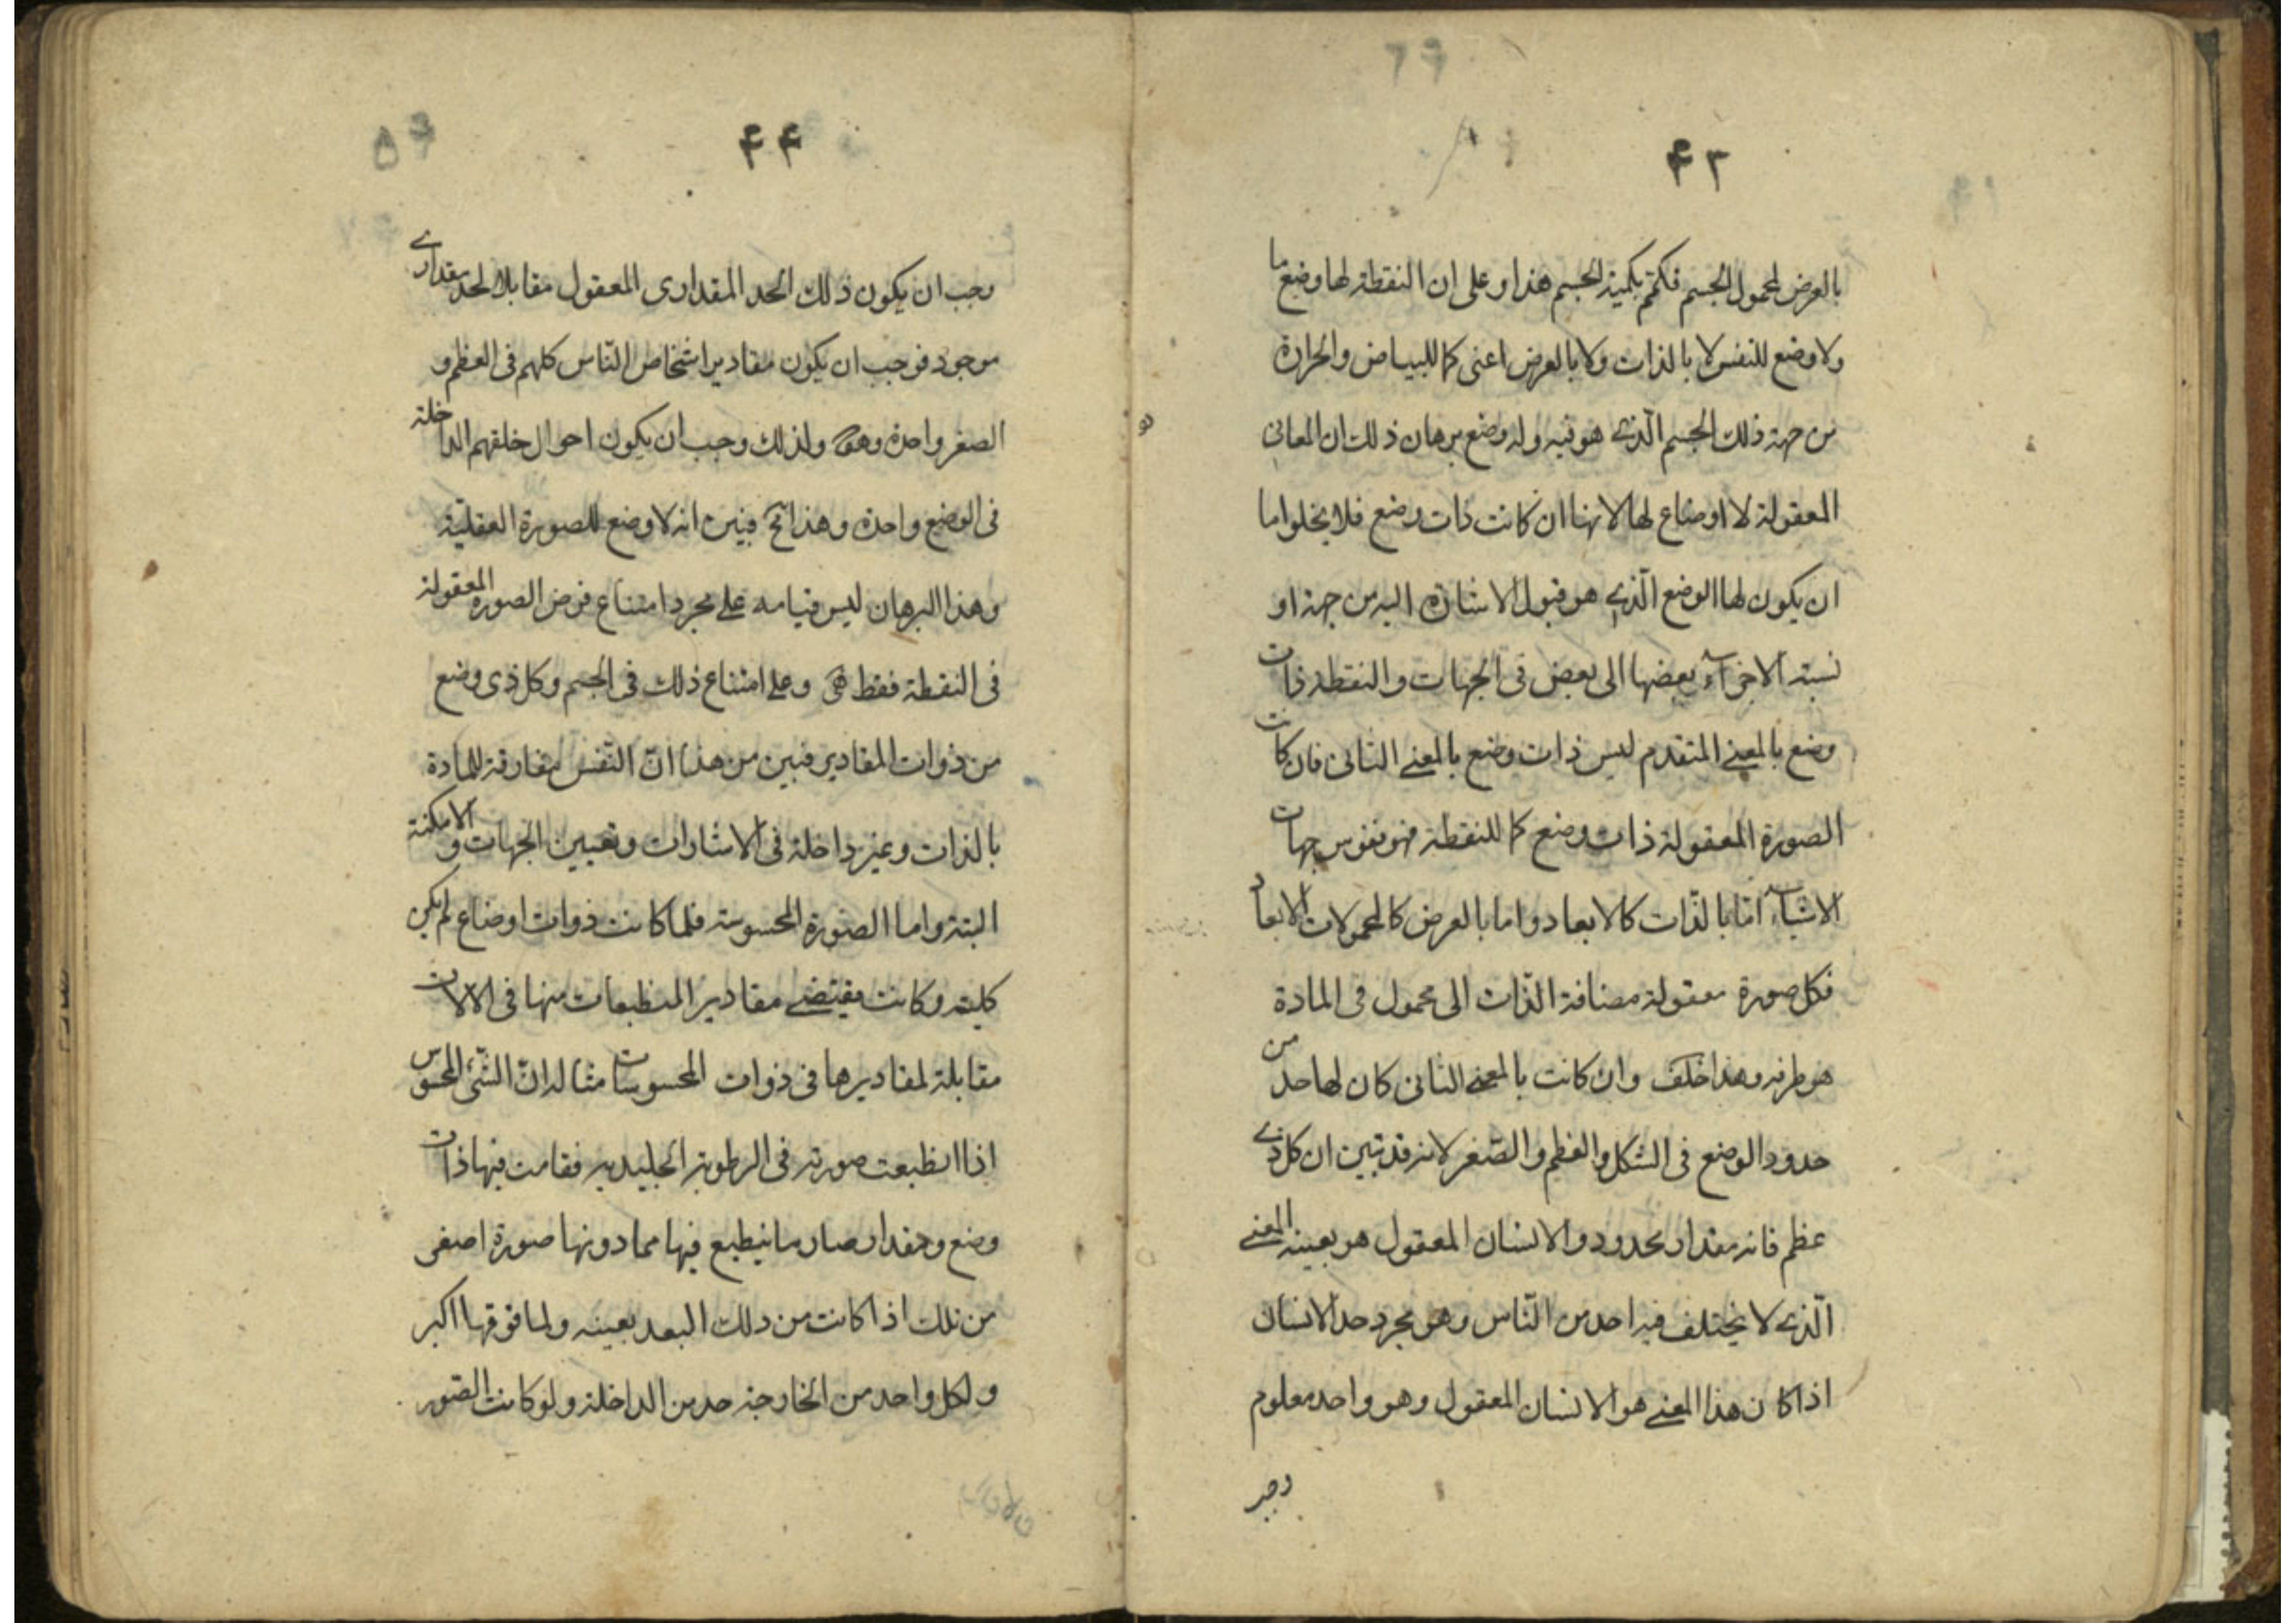 ۴۳
بالعرض لمحمول الجسم فكم بكمية الجسم هذا وعلى ان النقطة لها وضع ما
ولا وضع للنفس لا بالذات ولا بالعرض اعنى كما للبياض والحرارة
من جهة ذلك الجسم الّذى هو فيه وله وضع برهان ذلك ان المعانى
المعقولة لا اوضاع لها لانها ان كانت ذات وضع فلا يخلوا اما
ان يكون لها الوضع الّذى هو قبول الاشارة اليه من جهة او
نسبة الاجزآء بعضها الى بعض فى الجهات والنقطة ذات
وضع بالمعنى المتقدم ليس ذات وضع بالمعنى الثانى فان كانت
الصورة المعقولة ذات وضع كما للنقطة جهات
الاشيآء امّا بالذّات كالابعاد واما بالعرض كالمحمولات الابعاد
فكل صورة معقولة مضافة الذّات الى محمول فى المادة
هو طرفه وهذا خلف وان كانت بالمعنى الثانى كان لها حد من
حدود الوضع فى الشكل والعظم والصّغر لانه قد تبين ان كل ذى
عظم فانه مقدار محدود والانسان المعقول هو بعينه المعنى
الّذى لا يختلف فيه احد من النّاس وهو مجرد حد الانسان
اذا كان هذا المعنى هو الانسان المعقول وهو واحد معلوم
وجب
۴۴
وجب ان يكون ذلك الحد المقدارى المعقول مقابلا لحد مقدارى
موجود فوجب ان يكون مقادير اشخاص النّاس كلهم فى العظم و
الصغر واحدة ولذلك وجب ان يكون احوال خلقهم الداخلة
فى الوضع واحدة وهذا مح فبين انه لا وضع للصورة العقلية
وهذا البرهان ليس قيامه على مجرد امتناع فرض الصورة المعقولة
فى النقطة فقط وعلى امتناع ذلك فى الجسم وكل ذى وضع
من ذوات المقادير فبين من هذا انّ النّفس مفارقة للمادة
بالذات وغير داخلة فى الاشارات وتعيين الجهات والامكنة
البتة واما الصّورة المحسوسة فلما كانت ذوات اوضاع لم يكن
كلية وكانت يقتضى مقادير المنطبعات منها فى الآلات
مقابلة لمقاديرها فى ذوات المحسوسات مثاله انّ الشّئ المحسوس
اذا انطبعت صورته فى الرطوبة الجليدية فقامت فيها ذات
وضع ومقدار صار ما ينطبع فيها مما دونها صورة اصغر
من تلك اذا كانت من ذلك البعد بعينه ولما فوقها اكبر
ولكل واحد من الخارجة حد من الداخلة ولو كانت الصّور